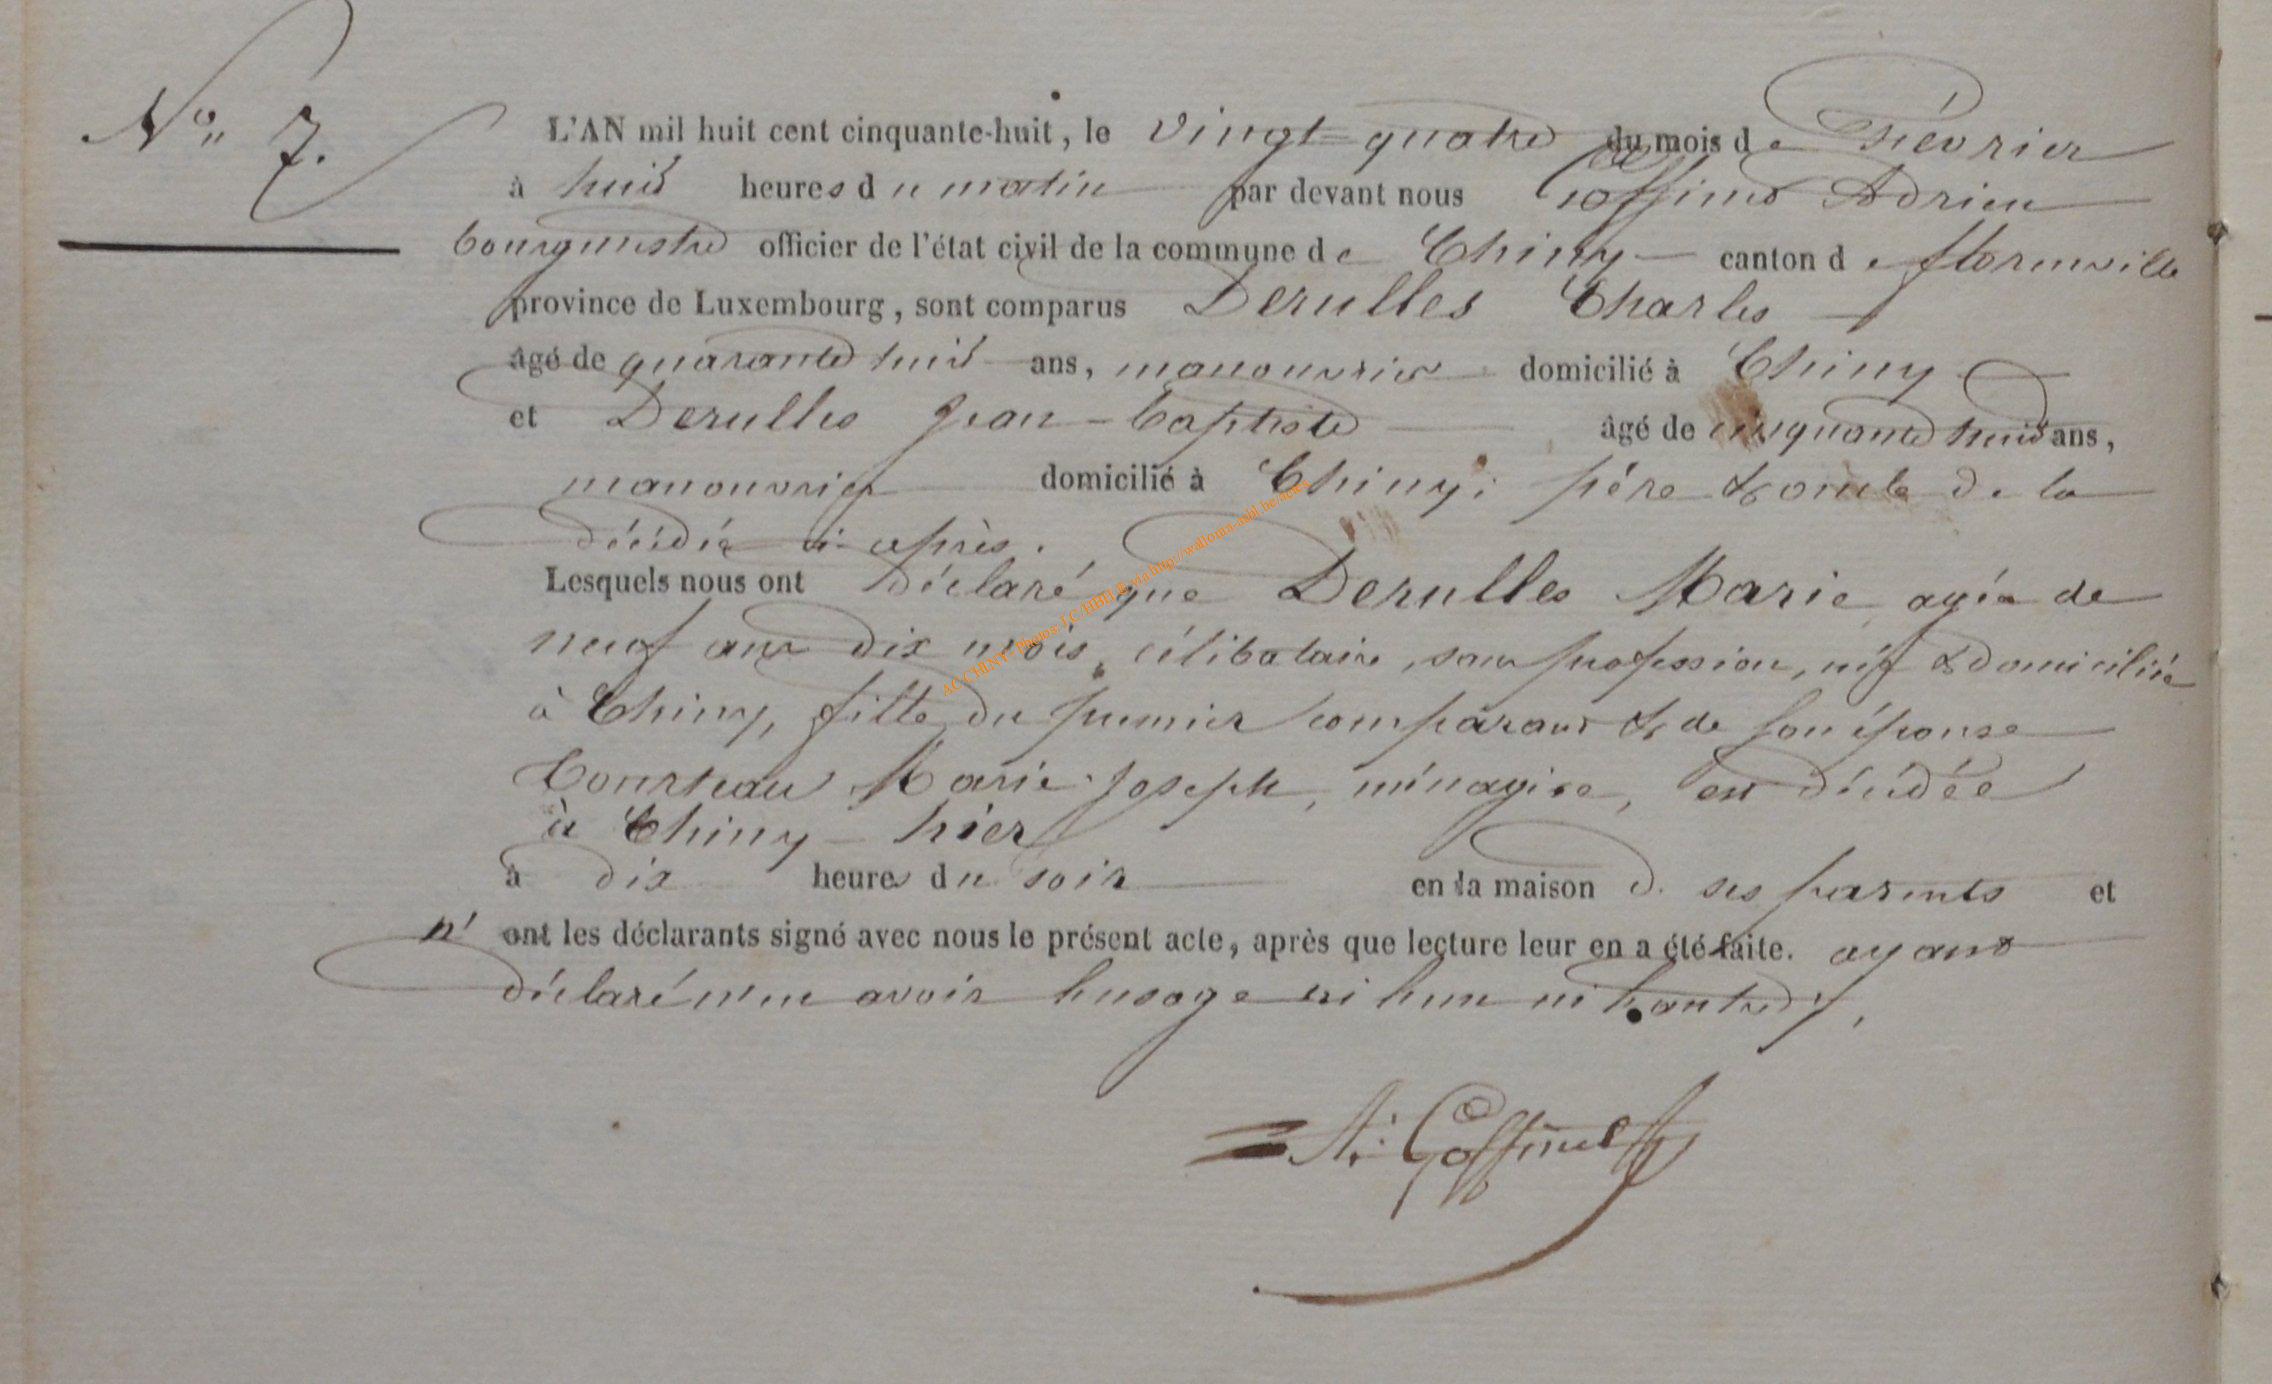 N° 7.
L'AN mil huit cent cinquante-huit, le vingt-quatre du mois de Février
à huit heures du matin par devant nous Goffinet Adrien
bourgmestre officier de l'état civil de la commune de Chiny canton de florenville
province de Luxembourg, sont comparus Derulles Charles
âgé de quarante huit ans, manouvrier domicilié à Chiny
et Derulles Jean-baptiste âgé de cinquante huit ans,
manouvrier domicilié à Chiny; père & oncle de la
décédée ci-après.
Lesquels nous ont déclaré que Derulles Marie agée de
neuf ans dix mois, célibataire, sans profession, née & domiciliée
à Chiny, fille du premier comparant & de son épouse
Marie-Joseph, ménagère, est décédée
à Chiny hier
à dix heures du soir en la maison de ses parents et
n' ont les déclarants signé avec nous le présent acte, après que lecture leur en a été faite. ayant
déclaré n'en avoir l'usage ni l'un ni l'autre,
A. Goffinet